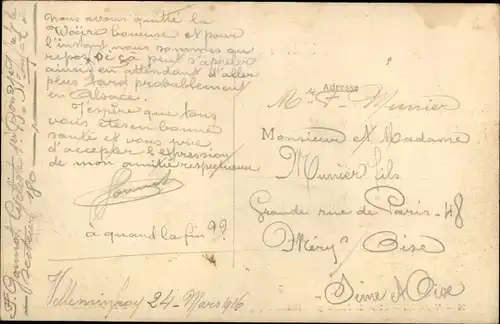 Nous avons quitté la
Woëvre boueuse et pour
l'instant nous sommes au
repos, si çà peut s'appeler
ainsi en attendant d'aller
plus tard probablement
en Alsace.
J'espère que tous
vous êtes en bonne
santé et vous prie
d'accepter l'expression
de mon amitié respectueuse
à quand la fin ??
Villeminfroy 24 - Mars 1916
Adresse
Mr F. Munier
Monsieur et Madame
Munier fils
Grande rue de Paris - 48
Méry s/ Oise
Seine et Oise